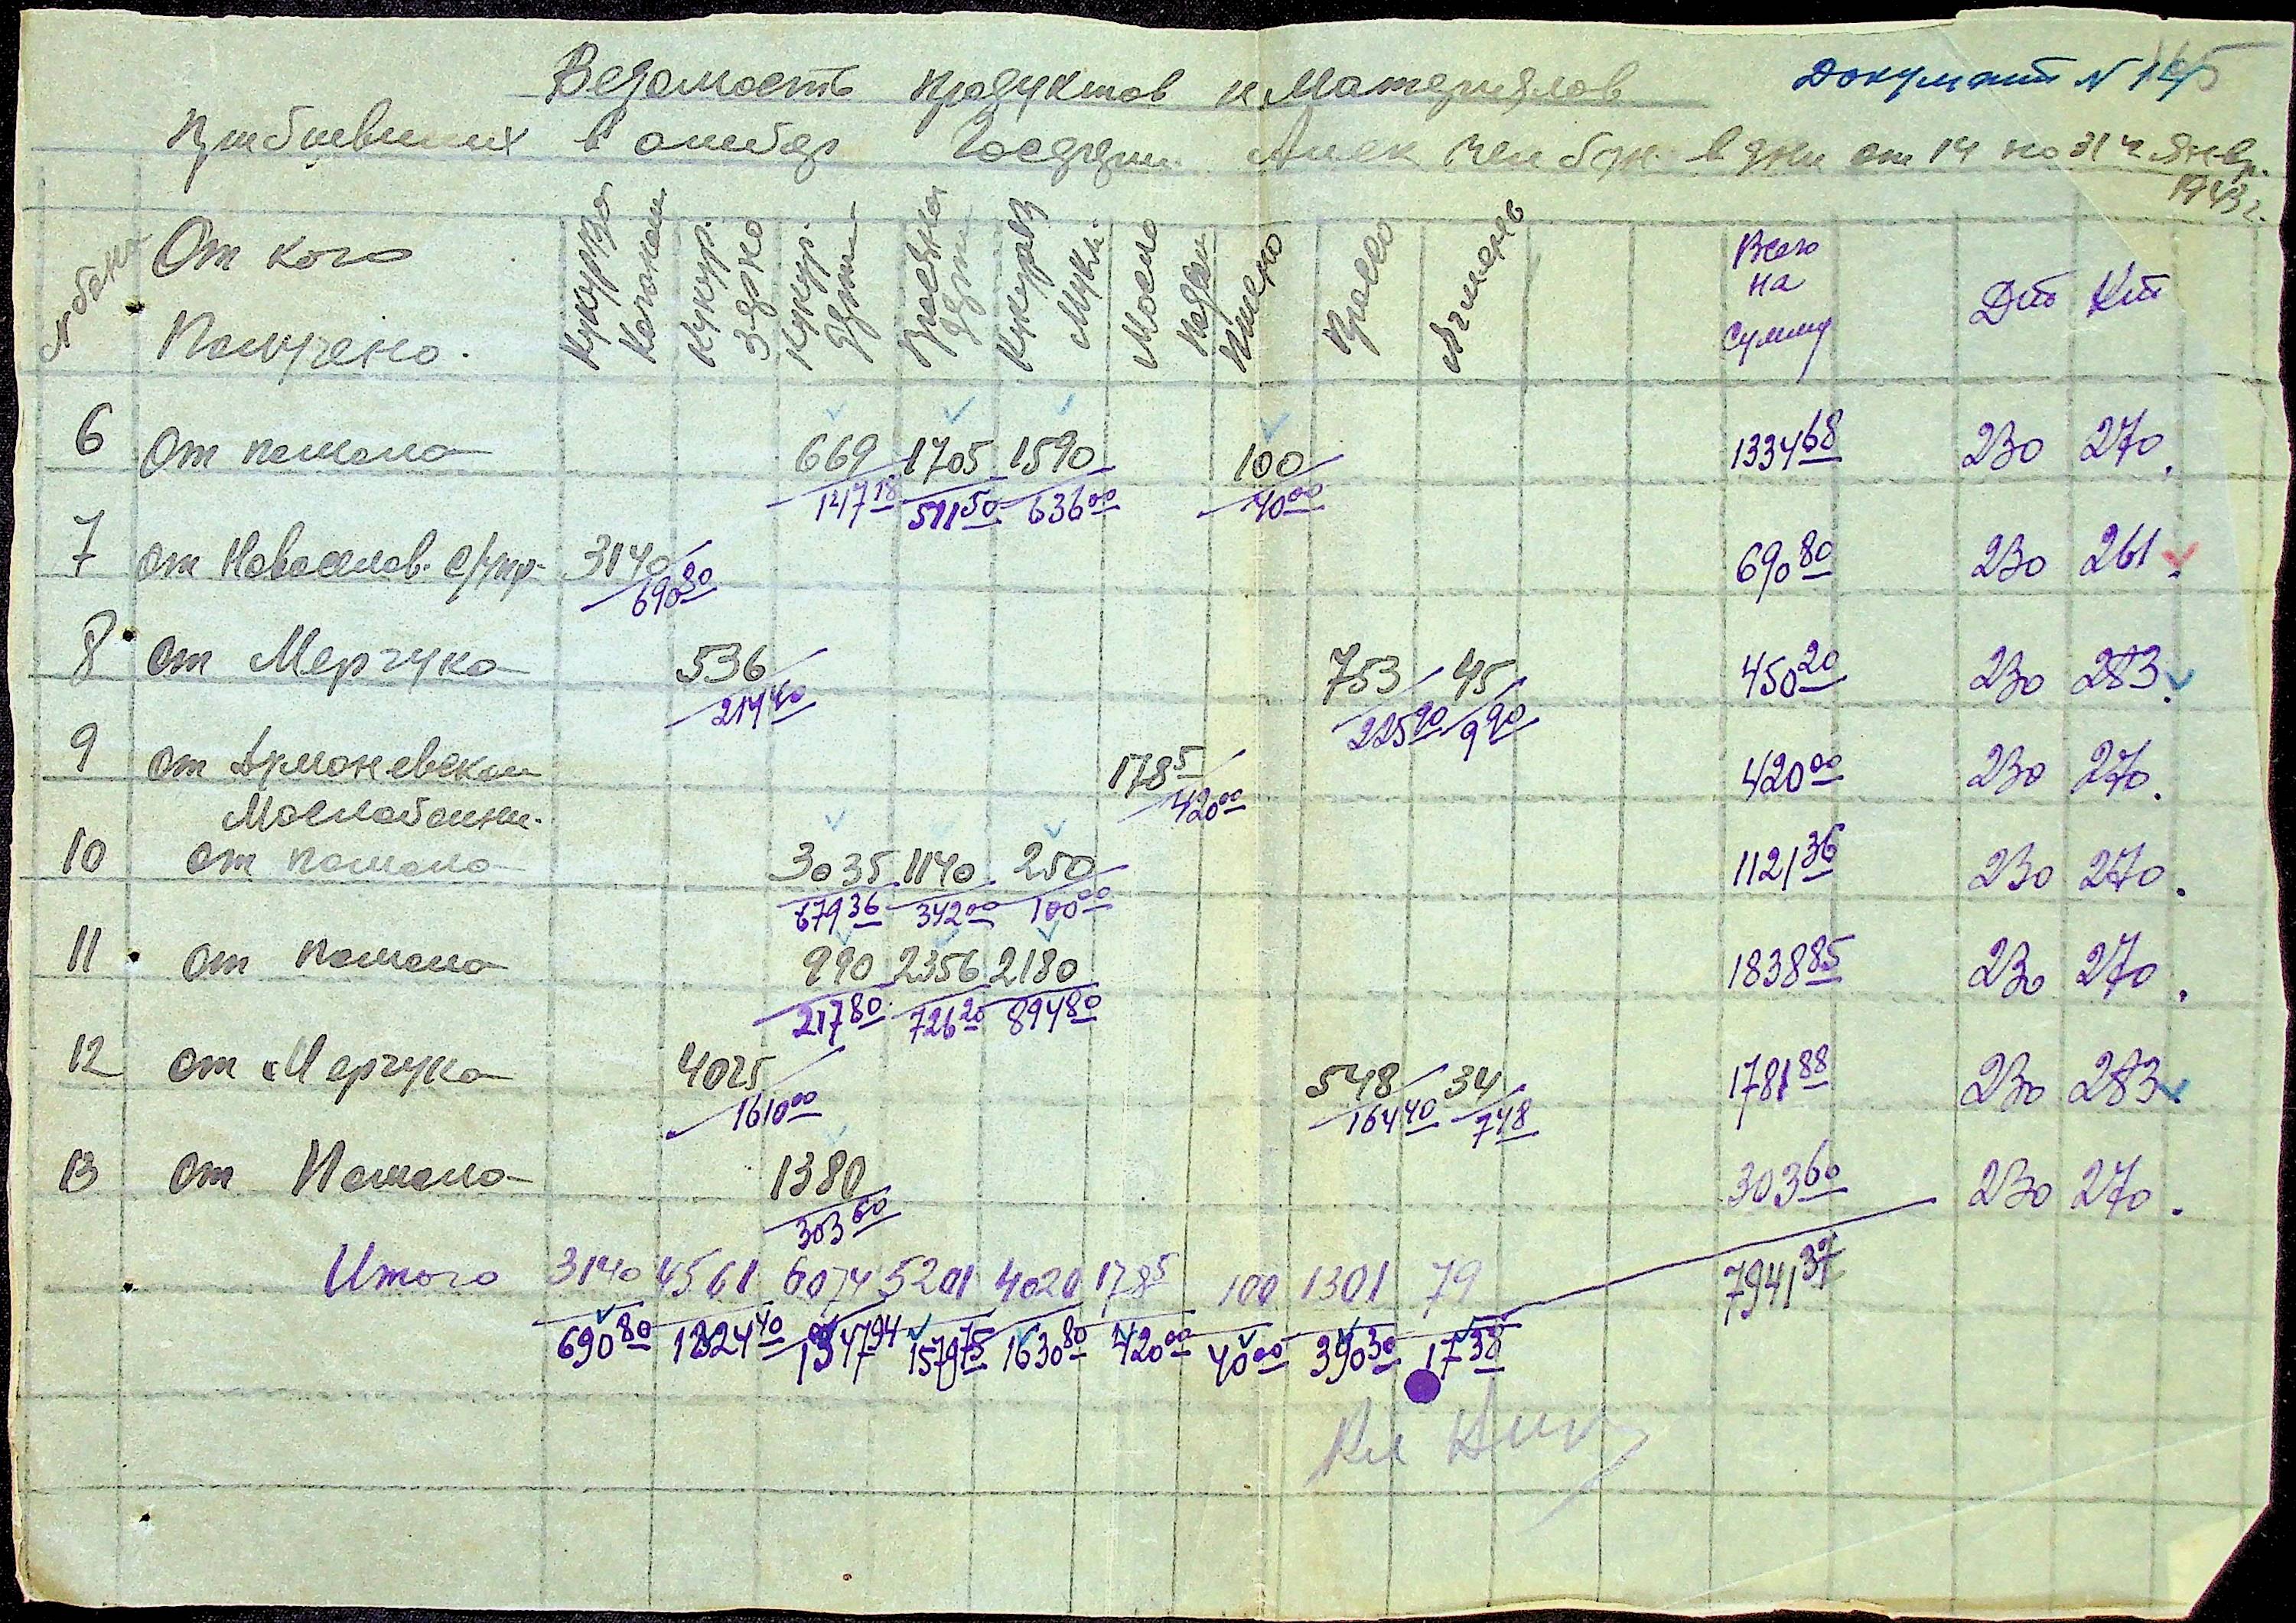 Документ N 145
Ведомость продуктов и Материялов
Прибывших в амбар в дни от 14 по 31 Янвр.
1943 г.
От кого
Получено.
Кукурузо Кочонам
Кукур. Зярно
Кукур. Дрти
Просяна Дрти
Кукурузн Муки
Масло
Пшено
Просо
Ячмень
Всего на сумму
Дт Кт
6 От помола 669 1705 1590 100 1334 68 230 270
147 18 511 50 636 00 40 00
7 от Новоселов. 3140 690 80 230 261
690 80
8 от Мерчука 536 753 45 450 20 230 283
214 40 225 90 9 90
9 от Армоневской 178 5 420 00 230 270
Маслобойни. 420 00
10 от помола 3035 1140 250 1121 36 230 270
679 36 342 00 100 00
11 от помола 990 2356 2180 1838 85 230 270
217 80 726 20 894 80
12 от Мерчука 4025 548 34 1781 88 230 283
1610 00 164 40 7 48
13 от Помола 1380 303 60 230 270
303 60
Итого 3140 4561 6074 5201 4020 178 5 100 1301 79 7941 37
690 80 1824 40 1347 94 1579 75 1630 80 420 00 40 00 390 30 17 38